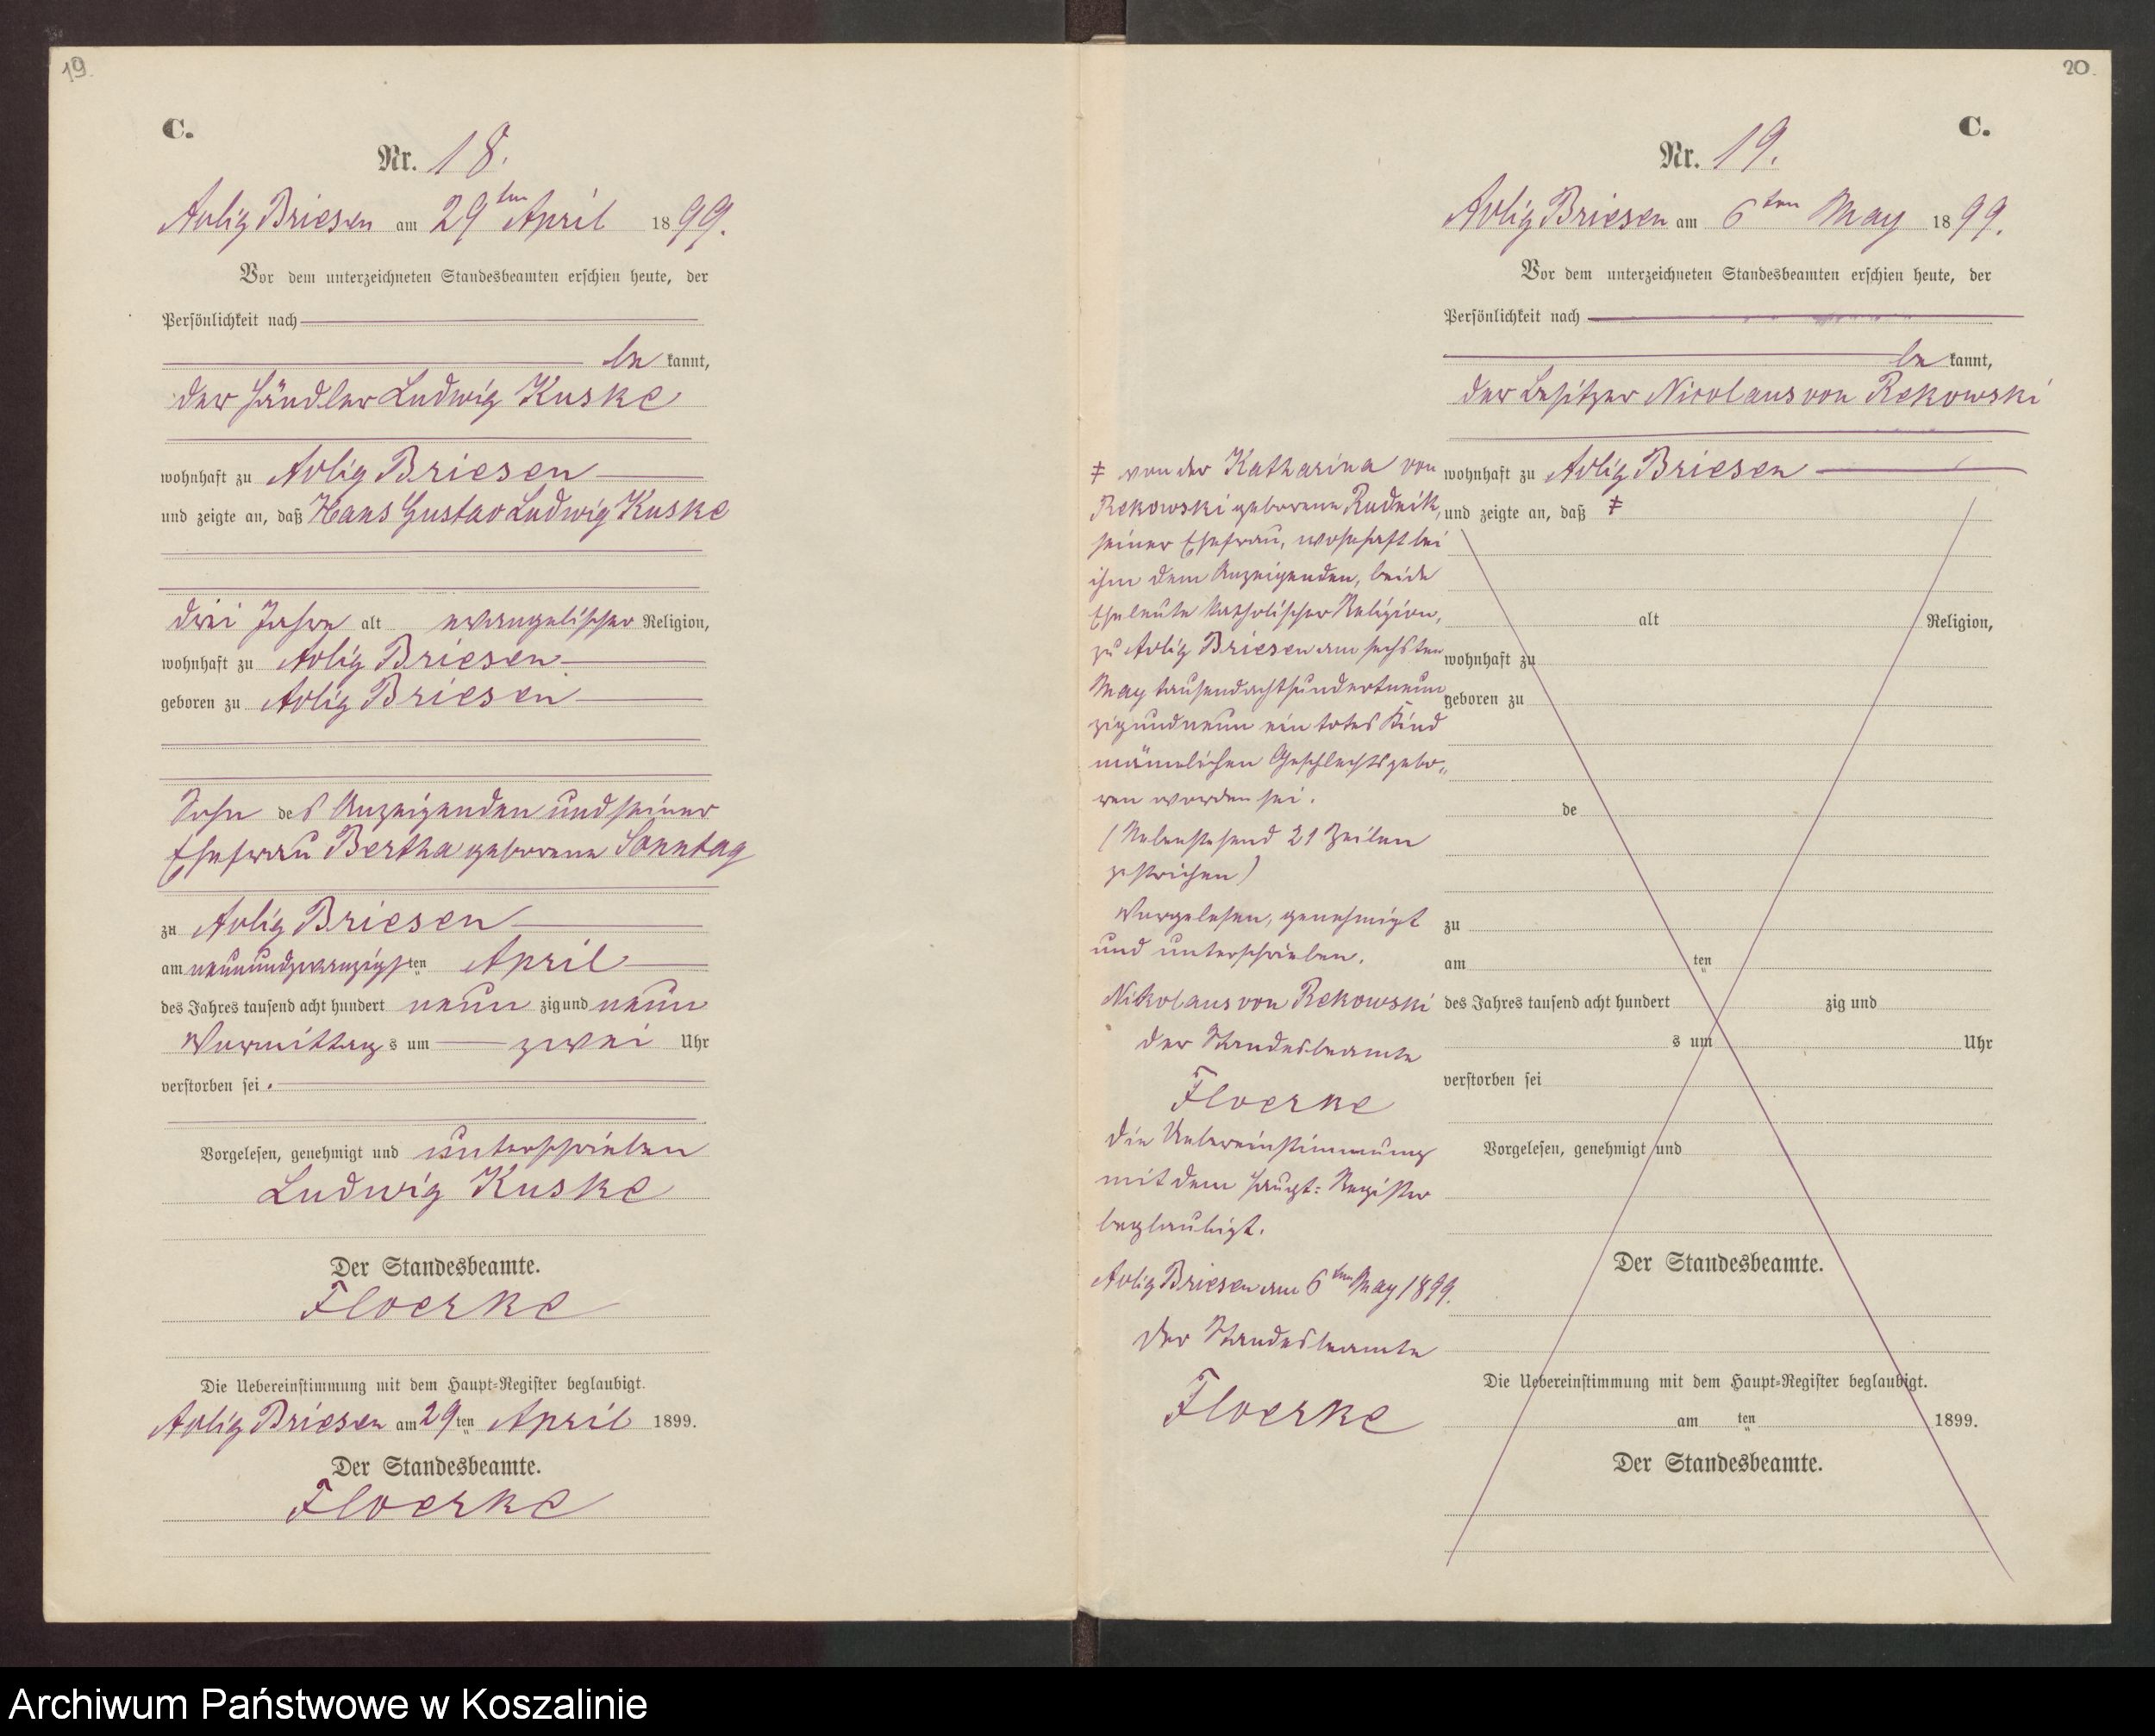 19.
C.
Nr. 18.
Adlig Briesen am 29ten April 1899.
Vor dem unterzeichneten Standesbeamten erschien heute, der
Persönlichkeit nach
be kannt,
der Händler Ludwig Kuske
wohnhaft zu Adlig Briesen
und zeigte an, daß Hans Gustav Ludwig Kuske
drei Jahre alt evangelischer Religion,
wohnhaft zu Adlig Briesen
geboren zu Adlig Briesen
Sohn des Anzeigenden und seiner
Ehefrau Bertha geborene Sonntag
zu Adlig Briesen
am neunundzwanzigsten April
des Jahres tausend acht hundert neun zig und neun
Vormittags um zwei Uhr
verstorben sei.
Vorgelesen, genehmigt und unterschrieben
Ludwig Kuske
Der Standesbeamte.
Floerke
Die Uebereinstimmung mit dem Haupt-Register beglaubigt.
Adlig Briesen am 29ten April 1899.
Der Standesbeamte.
Floerke
20.
C.
Nr. 19.
Adlig Briesen am 6ten May 1899.
Vor dem unterzeichneten Standesbeamten erschien heute, der
Persönlichkeit nach
be kannt,
der Besitzer Nicolaus von Rekowski
wohnhaft zu Adlig Briesen
und zeigte an, daß ‡
‡ von der Katharina von
Rekowski geborene Rudnik,
seiner Ehefrau, wohnhaft bei
ihm dem Anzeigenden, beide
Eheleute katholischer Religion,
zu Adlig Briesen am sechsten
May tausendachthundertneun
zigundneun ein totes Kind
männlichen Geschlechts gebo-
ren worden sei.
(Nebenstehend 21 Zeilen
gestrichen)
Vorgelesen, genehmigt
und unterschrieben.
Nikolaus von Rekowski
Der Standesbeamte
Floerke
Die Uebereinstimmung
mit dem Haupt-Register
beglaubigt.
Adlig Briesen am 6ten May 1899.
Der Standesbeamte
Floerke
alt Religion,
wohnhaft zu
geboren zu
de
zu
am ten
des Jahres tausend acht hundert zig und
s um Uhr
verstorben sei
Vorgelesen, genehmigt und
Der Standesbeamte.
Die Uebereinstimmung mit dem Haupt-Register beglaubigt.
am ten 1899.
Der Standesbeamte.
Archiwum Państwowe w Koszalinie